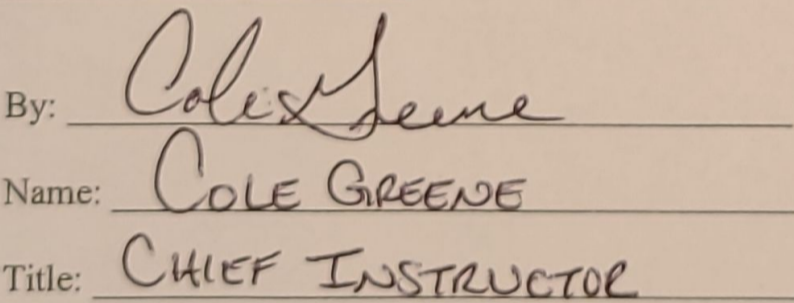 By: Cole Greene
Name: COLE GREENE
Title: CHIEF INSTRUCTOR